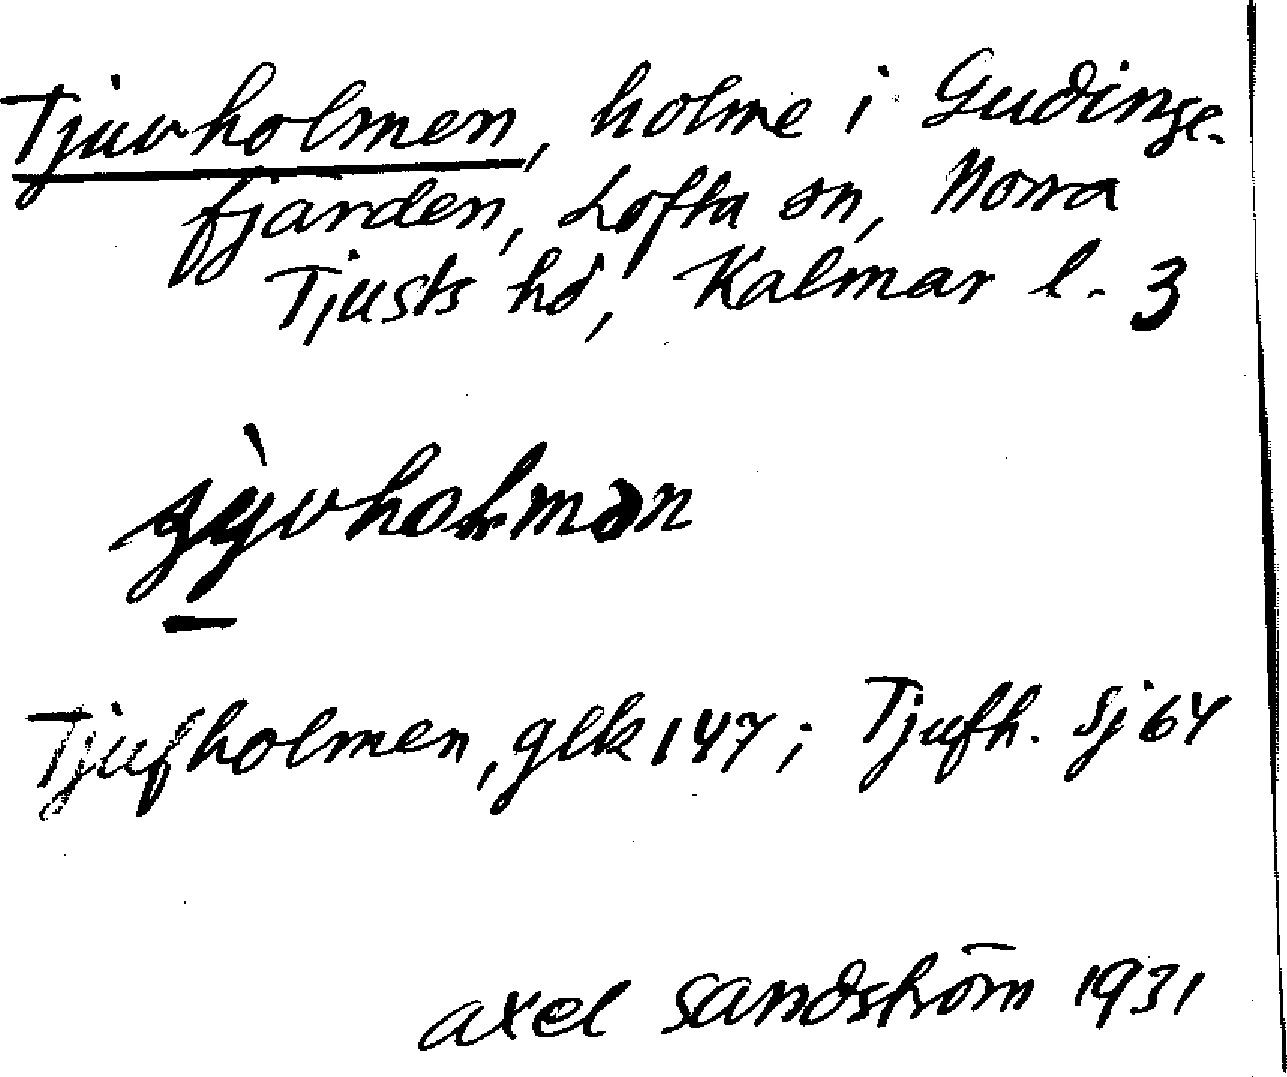 Tjuvholmen, holme i Gudinge-
fjärden, Lofta sn, Norra
Tjusts hd, Kalmar l. 3
Tjufholmen, glk 147; Tjufh. Sj 64
Axel Sandström 1931